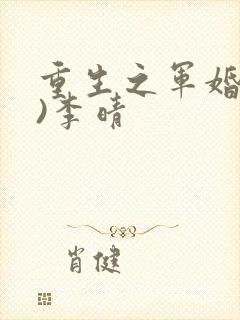 重生之军婚
)李晴
肖健